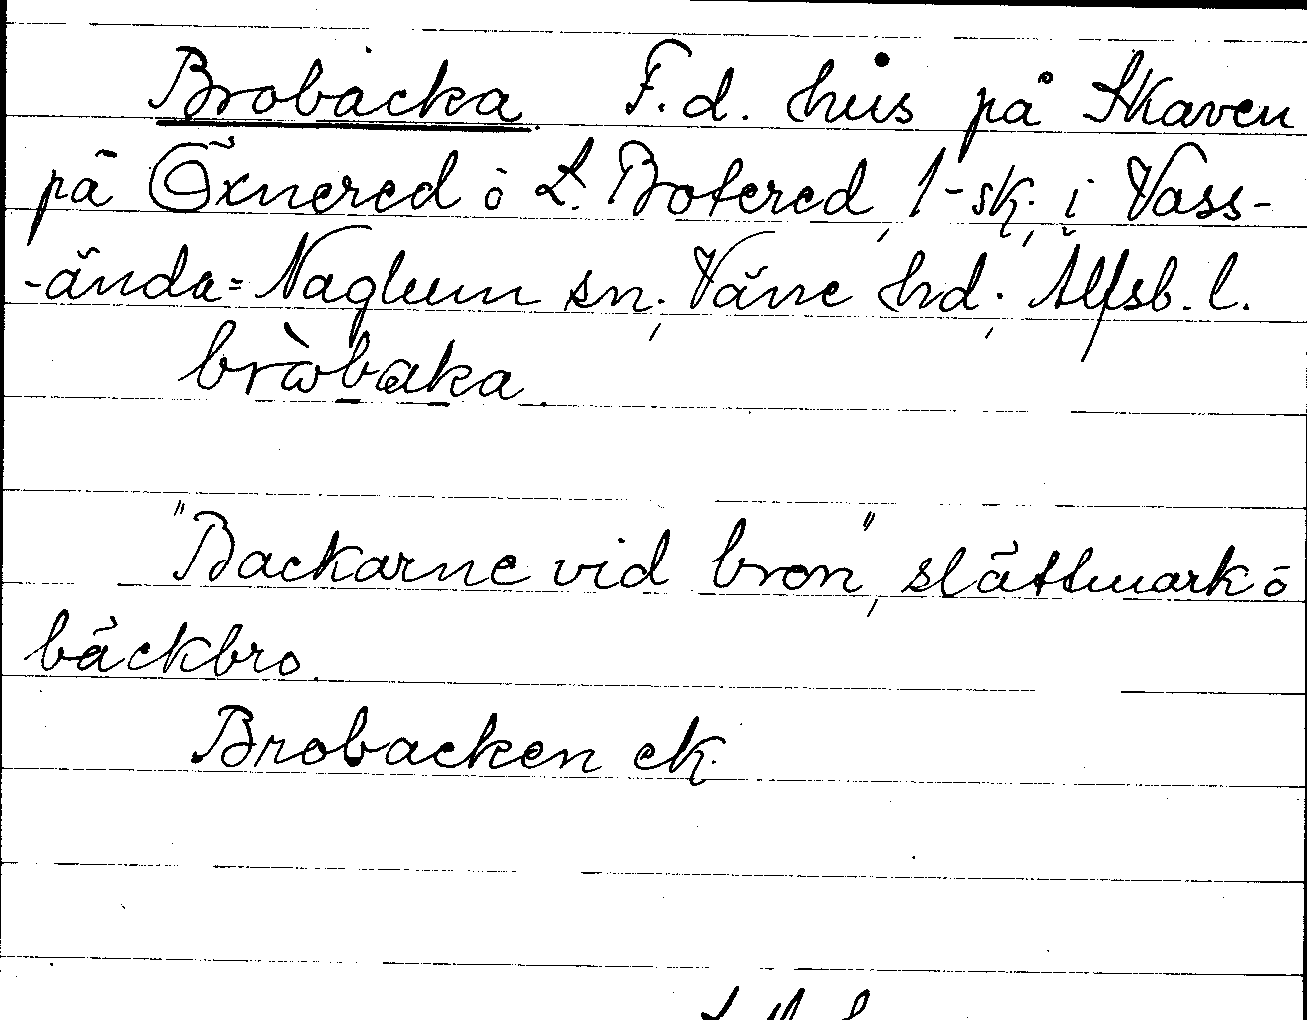 Brobacka. F.d. hus på Skaven
på Öxnered o L. Botered, 1-sk., i Vass-
-ända=Naglum sn, Väne hd, Älfsb. l.
bròbaka.
"Backarne vid bron", slättmark o
bäckbro.
Brobacken ek.